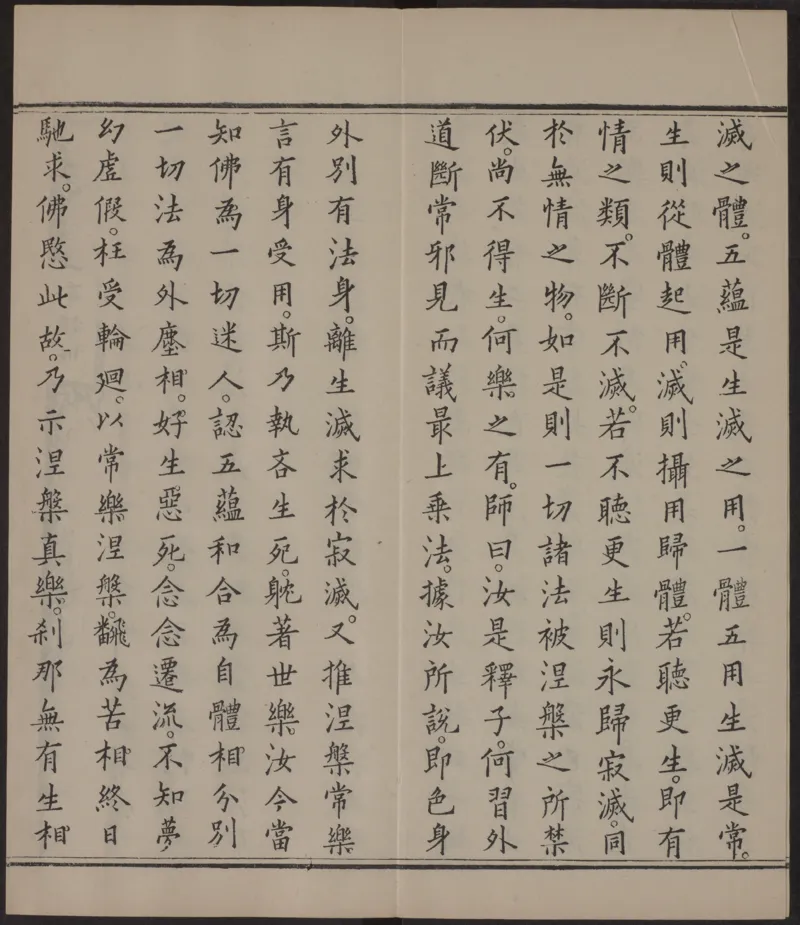 滅之體。五蘊是生滅之用。一體五用生滅是常。
生則從體起用。滅則攝用歸體。若聽更生。即有
情之類。不斷不滅。若不聽更生則永歸寂滅。同
於無情之物。如是則一切諸法被涅槃之所禁
伏。尚不得生。何樂之有。師曰。汝是釋子。何習外
道斷常邪見而議最上乗法。據汝所說。即色身
外別有法身。離生滅求於寂滅。又推涅槃常樂
言有身受用。斯乃執吝生死。躭著世樂。汝今當
知佛為一切迷人。認五蘊和合為自體相分別
一切法為外塵相。好生惡死。念念遷流。不知夢
幻虛假。枉受輪廻。以常樂涅槃。飜為苦相終日
馳求。佛愍此故。乃示涅槃真樂。刹那無有生相